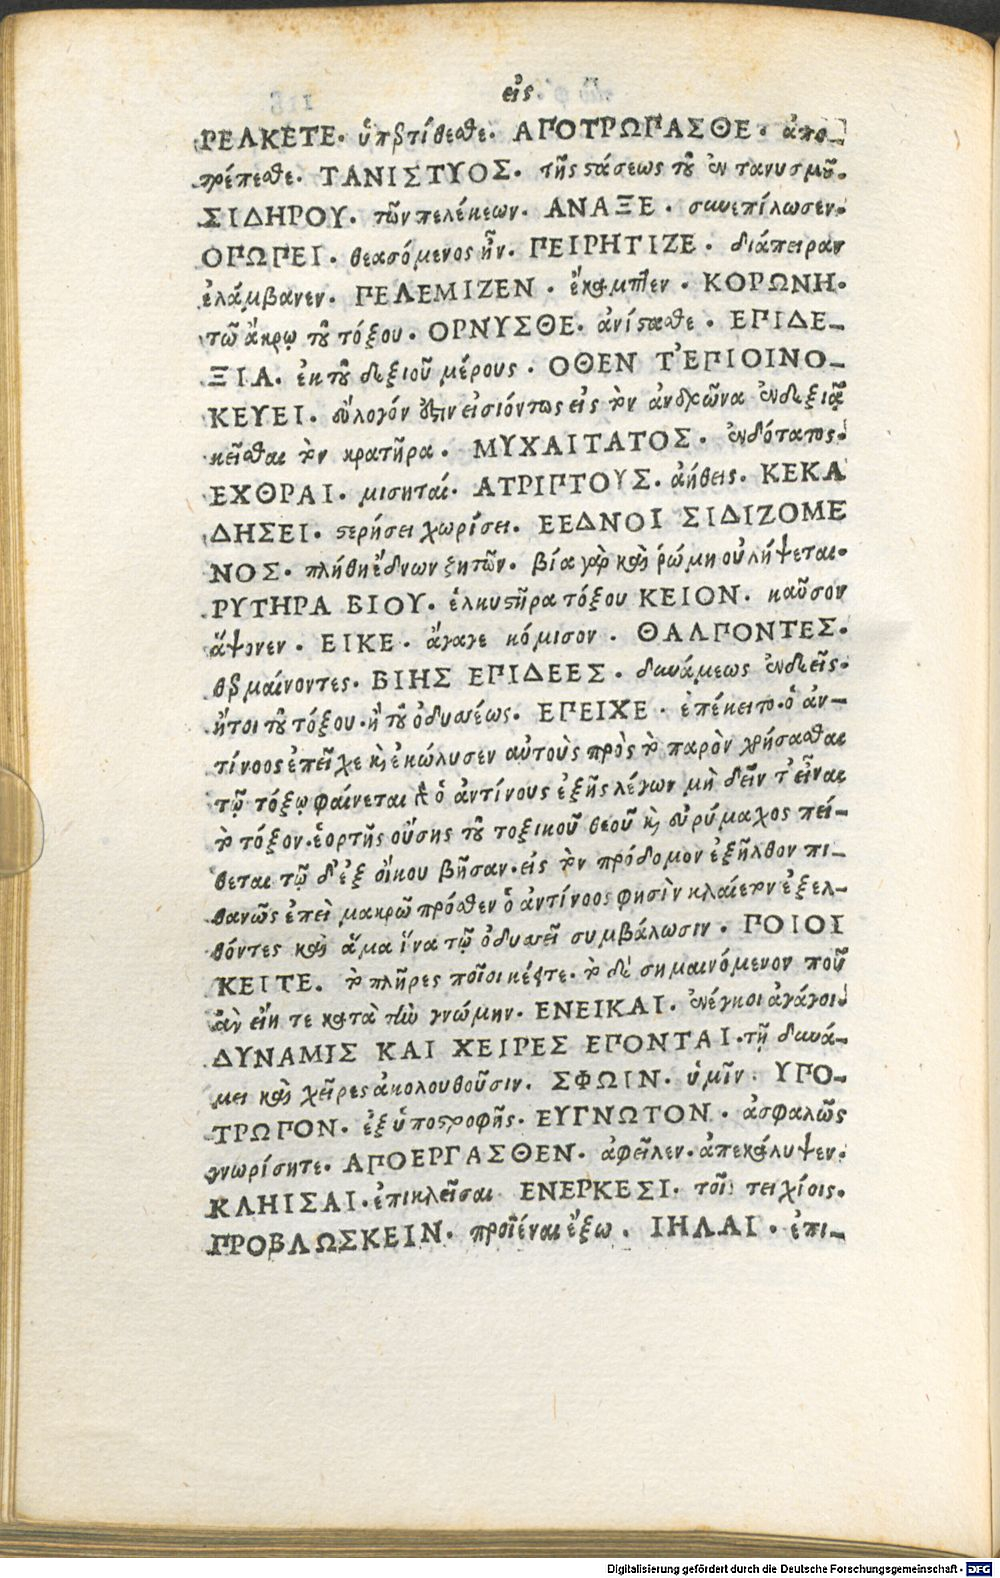 εἰς
ΡΕΛΚΕΤΕ. ὑπερτίθεσθε. ΑΠΟΤΡΩΠΑΣΘΕ. ἀπο-
τρέπεσθε. ΤΑΝΙΣΤΥΟΣ. τῆς τάσεως τοῦ ἐντανυσμοῦ.
ΣΙΔΗΡΟΥ. τῶν πελέκεων. ΑΝΑΞΕ. συνεπίλωσεν.
ΟΠΩΠΕΙ. θεασόμενος ἦν. ΠΕΙΡΗΤΙΖΕ. διάπειραν
ἐλάμβανεν. ΠΕΛΕΜΙΖΕΝ. ἔκαμπτεν. ΚΟΡΩΝΗ.
τῶ ἄκρῳ τοῦ τόξου. ΟΡΝΥΣΘΕ. ἀνίστασθε. ΕΠΙΔΕ-
ΞΙΑ. ἐκ τοῦ δεξιοῦ μέρους. ΟΘΕΝ Τ'ΕΠΙΟΙΝΟ-
ΚΕΥΕΙ. εὔλογόν ἐστιν εἰσιόντος εἰς τὸν ἀνδρῶνα ἐν δεξιᾷ
κεῖσθαι τὸν κρατῆρα. ΜΥΧΑΙΤΑΤΟΣ. ἐνδότατος.
ΕΧΘΡΑΙ. μισηταί. ΑΤΡΙΠΤΟΥΣ. ἀήθεις. ΚΕΚΑ
ΔΗΣΕΙ. στερήσει χωρίσει. ΕΕΔΝΟΙ ΣΙΔΙΖΟΜΕ
ΝΟΣ. πλήθη ἕδνων ζητῶν. βία γὰρ καὶ ῥώμη οὐ λήψεται.
ΡΥΤΗΡΑ ΒΙΟΥ. ἑλκυστῆρα τόξου ΚΕΙΟΝ. καῦσον
ἅψονεν. ΕΙΚΕ. ἄγαγε κόμισον. ΘΑΛΠΟΝΤΕΣ.
θερμαίνοντες. ΒΙΗΣ ΕΠΙΔΕΕΣ. δυνάμεως ἐνδεεῖς.
ἤτοι τοῦ τόξου. ἢ τοῦ ὀδυσσέως. ΕΠΕΙΧΕ. ἐπέκειτο. ὁ ἀν-
τίνοος ἐπεῖχε καὶ ἐκώλυσεν αὐτοὺς πρὸς τὸ παρὸν χρήσασθαι
τῷ τόξῳ φαίνεται δὲ ὁ ἀντίνους ἑξῆς λέγων μὴ δεῖν τ'εῖναι
τὸ τόξον. ἑορτῆς οὔσης τοῦ τοξικοῦ θεοῦ καὶ εὐρύμαχος πεί-
θεται τῷ δ'ἐξ οἴκου βῆσαν. εἰς τὸν πρόδομον ἐξῆλθον πι-
θανῶς ἐπεὶ μακρῶ πρόσθεν ὁ ἀντίνοος φησὶν κλαίετον ἐξελ-
θόντες καὶ ἅμα ἵνα τῷ ὀδυσσεῖ συμβάλωσιν. ΠΟΙΟΙ
ΚΕΙΤΕ. τὸ πλῆρες ποῖοι κέητε. τὸ δὲ σημαινόμενον ποῦ
ἂν εἴη τε κατὰ τὴν γνώμην. ΕΝΕΙΚΑΙ. ἐνέγκοι ἀγάγοι.
ΔΥΝΑΜΙΣ ΚΑΙ ΧΕΙΡΕΣ ΕΠΟΝΤΑΙ. τῇ δυνά-
μει καὶ χεῖρες ἀκολουθοῦσιν. ΣΦΩΙΝ. ὑμῖν. ΥΠΟ-
ΤΡΩΠΟΝ. ἐξ ὑποστροφῆς. ΕΥΓΝΩΤΟΝ. ἀσφαλῶς
γνωρίσητε. ΑΠΟΕΡΓΑΣΘΕΝ. ἀφεῖλεν. ἀπεκάλυψεν.
ΚΛΗΙΣΑΙ. ἐπικλεῖσαι ΕΝΕΡΚΕΣΙ. τοῖ τειχίοις.
ΠΡΟΒΛΩΣΚΕΙΝ. προϊέναι ἔξω. ΙΗΛΑΙ. ἐπι-
Digitalisierung gefördert durch die Deutsche Forschungsgemeinschaft - DFG